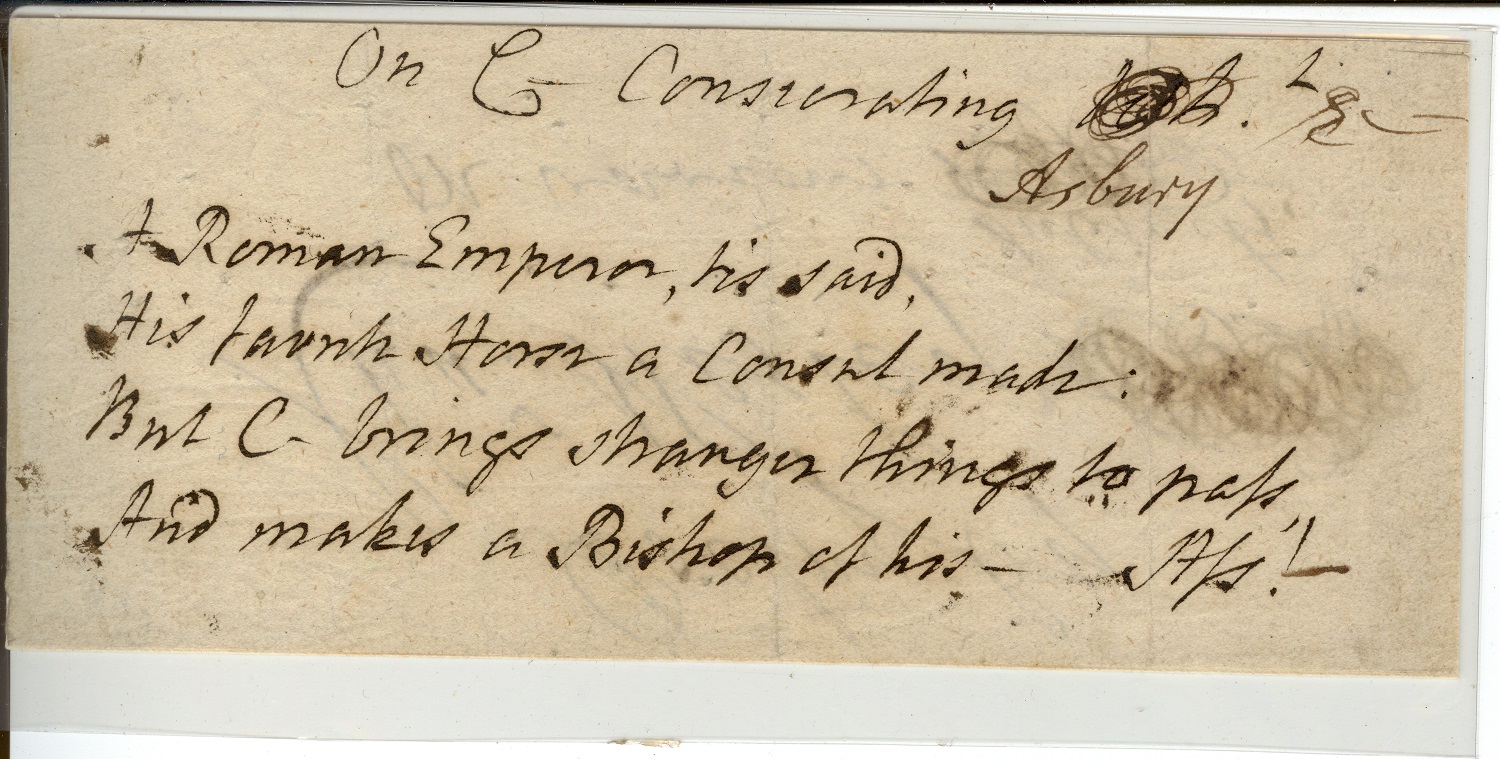 On C— Consecrating
Asbury
A Roman Emperor, tis said,
His favrite Horse a Consul made:
But C— brings stranger things to paſs,
And makes a Bishop of his— Aſs!—